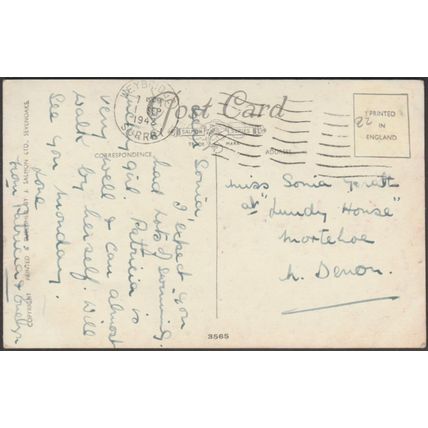 Post Card
WEYBRIDGE
SURREY
PRINTED
IN
ENGLAND
CORRESPONDENCE
ADDRESS
Sonia,
I expect you
had lots of swimming
girl. Patricia is
very well & can almost
walk by herself will
See you monday.
love
from Patricia & Evelyn
miss Sonia
at "Lundy House"
Mortehoe
N. Devon.
3565
COPYRIGHT PRINTED & PUBLISHED BY J. SALMON LTD. SEVENOAKS